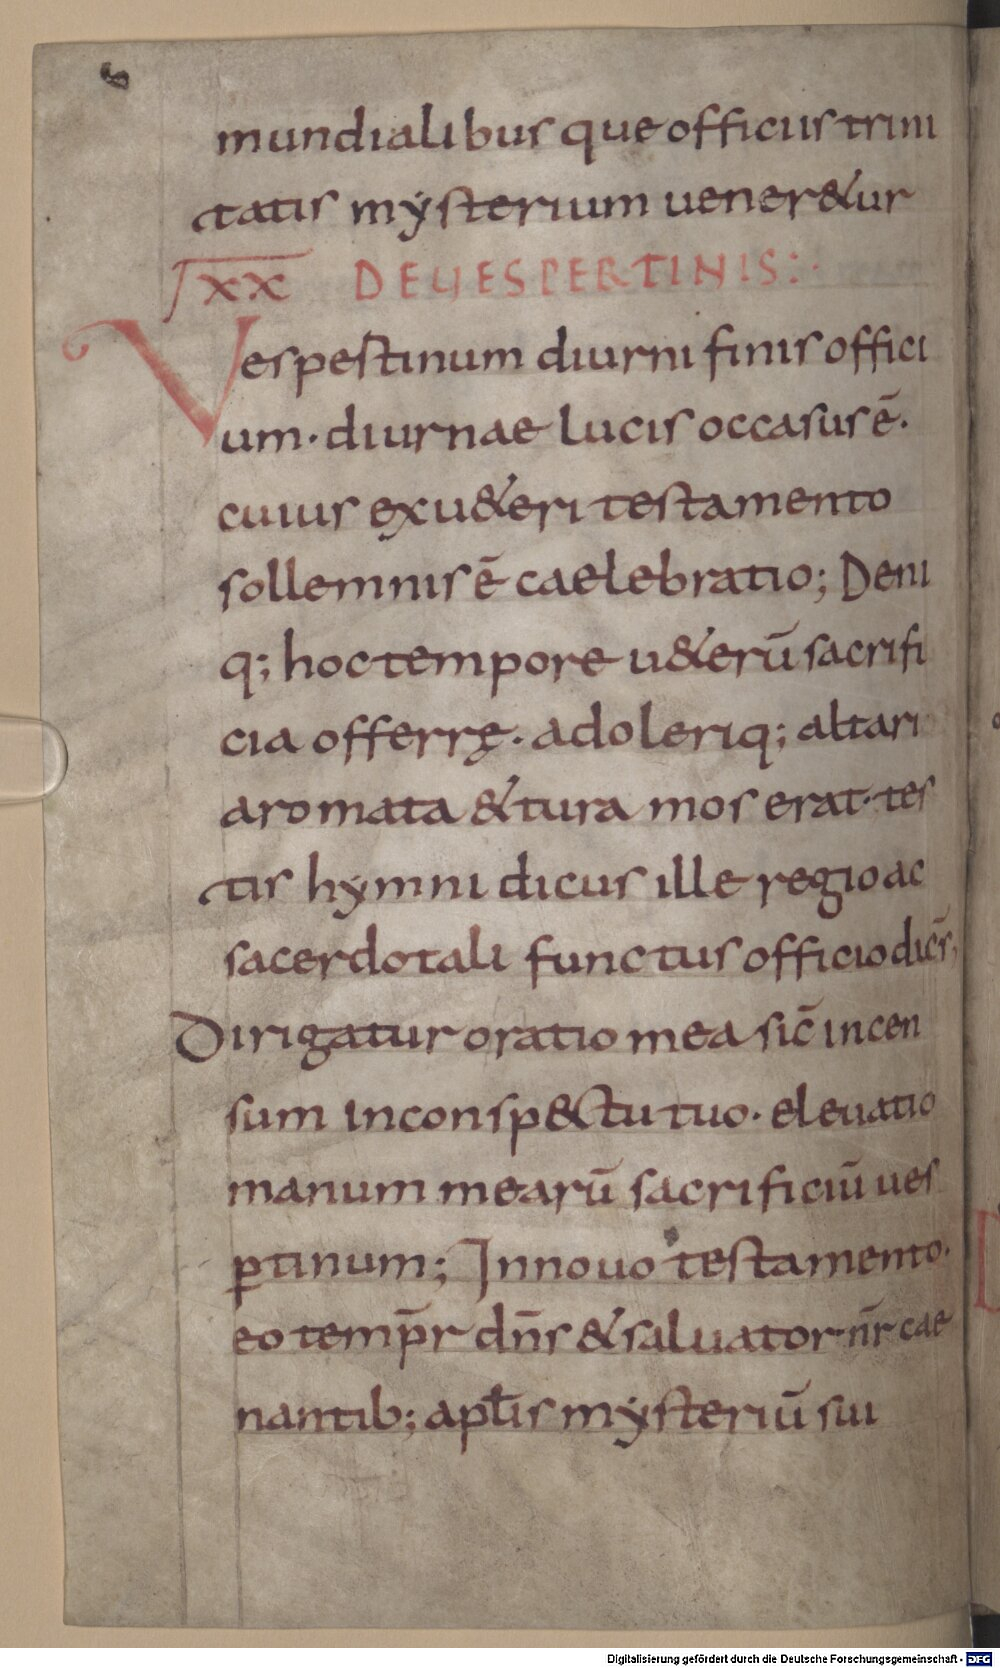 mundialibus que officiis trini
tatis mysterium ueneretur
XX DE UESPERTINIS:
Vespestinum diurni finis offici
um. diurnae lucis occasus ē.
cuius ex ueteri testamento
sollemnis ē caelebratio; Deni
q; hoc tempore ueterū sacrifi
cia offerrę. adoleriq; altari
aromata & tura mos erat. tes
tis hymnidicus ille regio ac
sacerdotali functus officio dicēs;
Dirigatur oratio mea sic̄ incen
sum in conspectu tuo. eleuatio
manum mearū sacrificiū ues
ꝑtinum; In nouo testamento.
eo temp̄r dn̄s & saluator nr̄ cae
nantib; apłis mysteriū sui
Digitalisierung gefördert durch die Deutsche Forschungsgemeinschaft - DFG